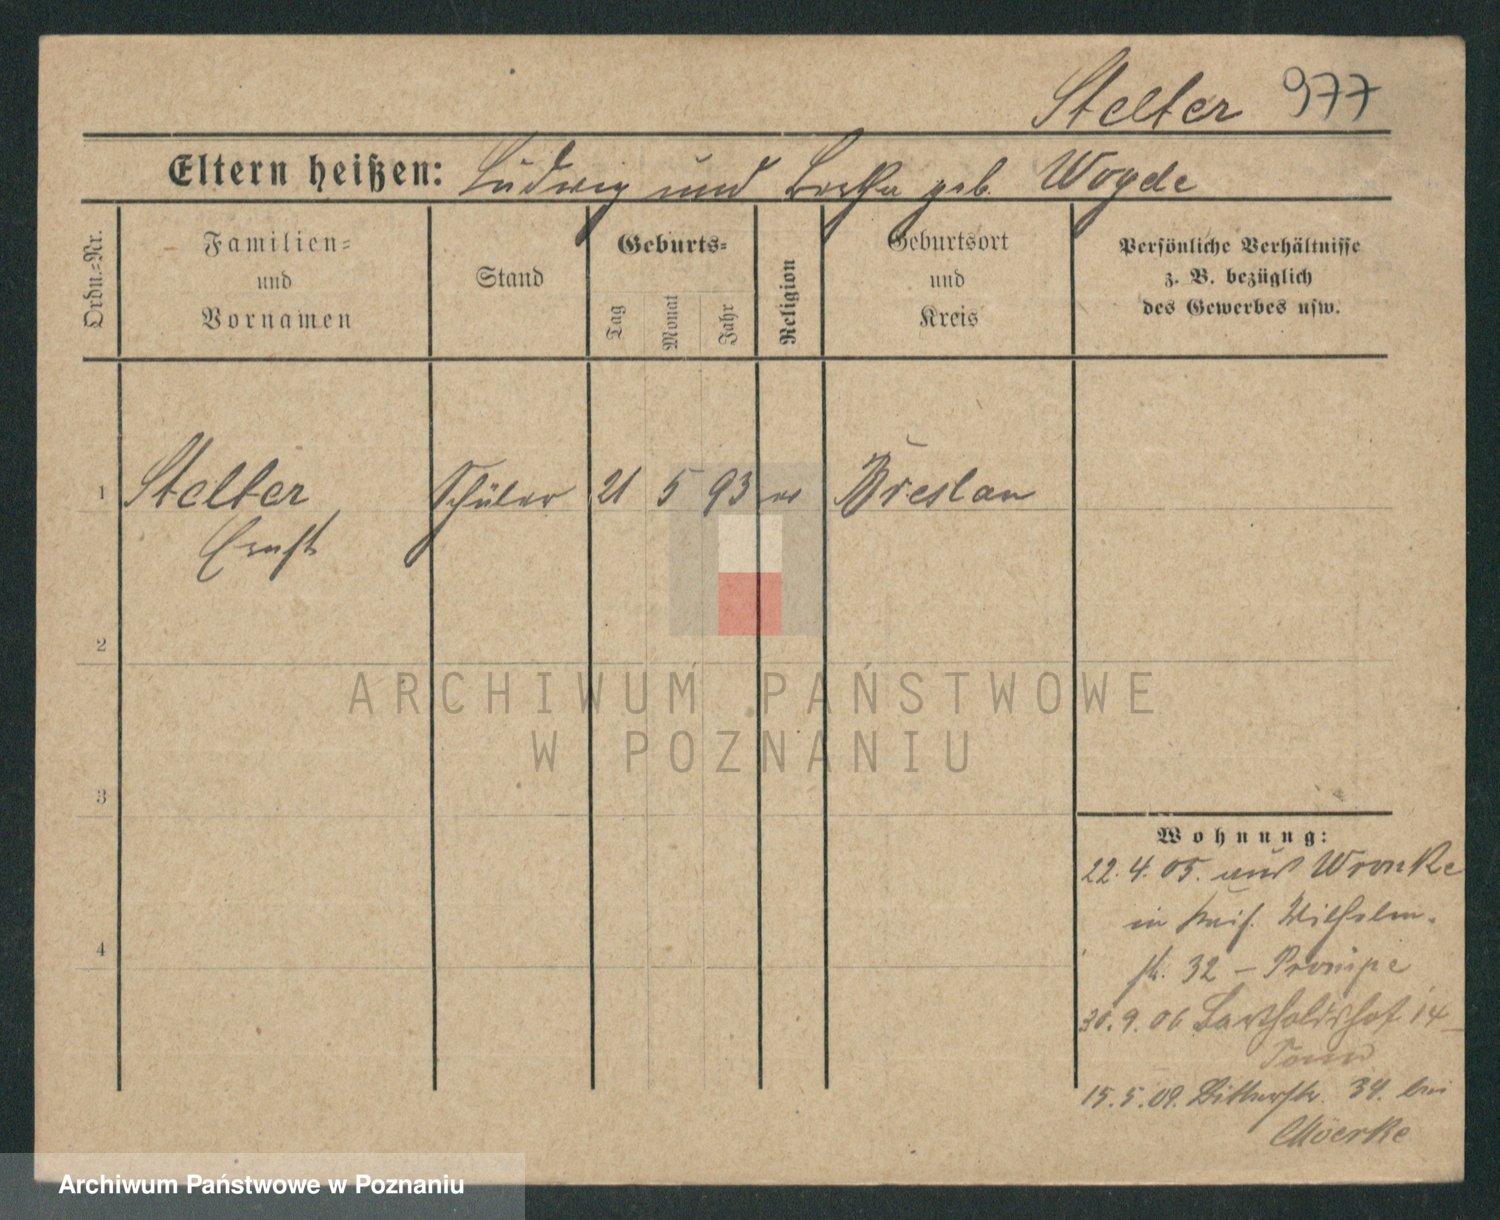 Stelter 977
Eltern heißen: Ludwig und geb. Wogde
Ordn.-Nr.
Familien-
und
Vornamen
Stand
Geburts-
Tag
Monat
Jahr
Religion
Geburtsort
und
Kreis
Persönliche Verhältnisse
z. B. bezüglich
des Gewerbes usw.
1 Stelter Schüler 21 5 93 ev Breslau
Ernst
2
ARCHIWUM PAŃSTWOWE
W POZNANIU
3
Wohnung:
22.4.05. aus Wronke
in Kais. Wilhelm-
4
str. 32 – Prompe
30.9.06 Bartholdshof 14
15.5.09. Ritterstr. 34. bei
Moerke
Archiwum Państwowe w Poznaniu